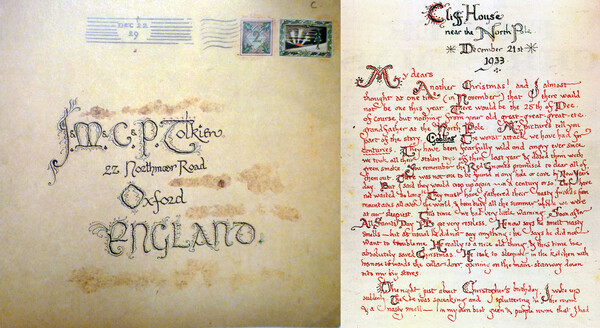 DEC 22
29
2
J. M. C. & P. Tolkien
22 Northmoor Road
Oxford
ENGLAND.
C
Cliff House
near the North Pole
December 21st
1933
My dears
Another Christmas! and I almost
thought at one time (in November) that there would
not be one this year. There would be the 25th of Dec.
of course, but nothing from your old great-great-great-etc.
grandfather at the North Pole. My pictures tell you
part of the story. Goblins. The worst attack we have had for
centuries. They have been fearfully wild and angry ever since
we took all their stolen toys off them last year & dosed them with
green smoke. You remember the Red Gnomes promised to clear all of
them out. There was not one to be found in any hole or cave by New Year's
day. But I said they would crop up again in a century or so. They have
not waited so long! They must have gathered their nasty friends from
mountains all over the world, & been busy all the summer while we were
at our sleepiest. This time we had very little warning. Soon after
All Saints' Day PB got very restless. He now says he smelt nasty
smells – but as usual he did not say anything: he says he did not
want to trouble me. He really is a nice old thing, & this time he
absolutely saved Christmas. He took to sleeping in the kitchen with
his nose towards the cellar-door, opening on the main-stairway down
into my big stores.
One night, just about Christopher's birthday, I woke up
suddenly. There was squeaking and spluttering in the room
& a nasty smell – in my own best green & purple room that I had